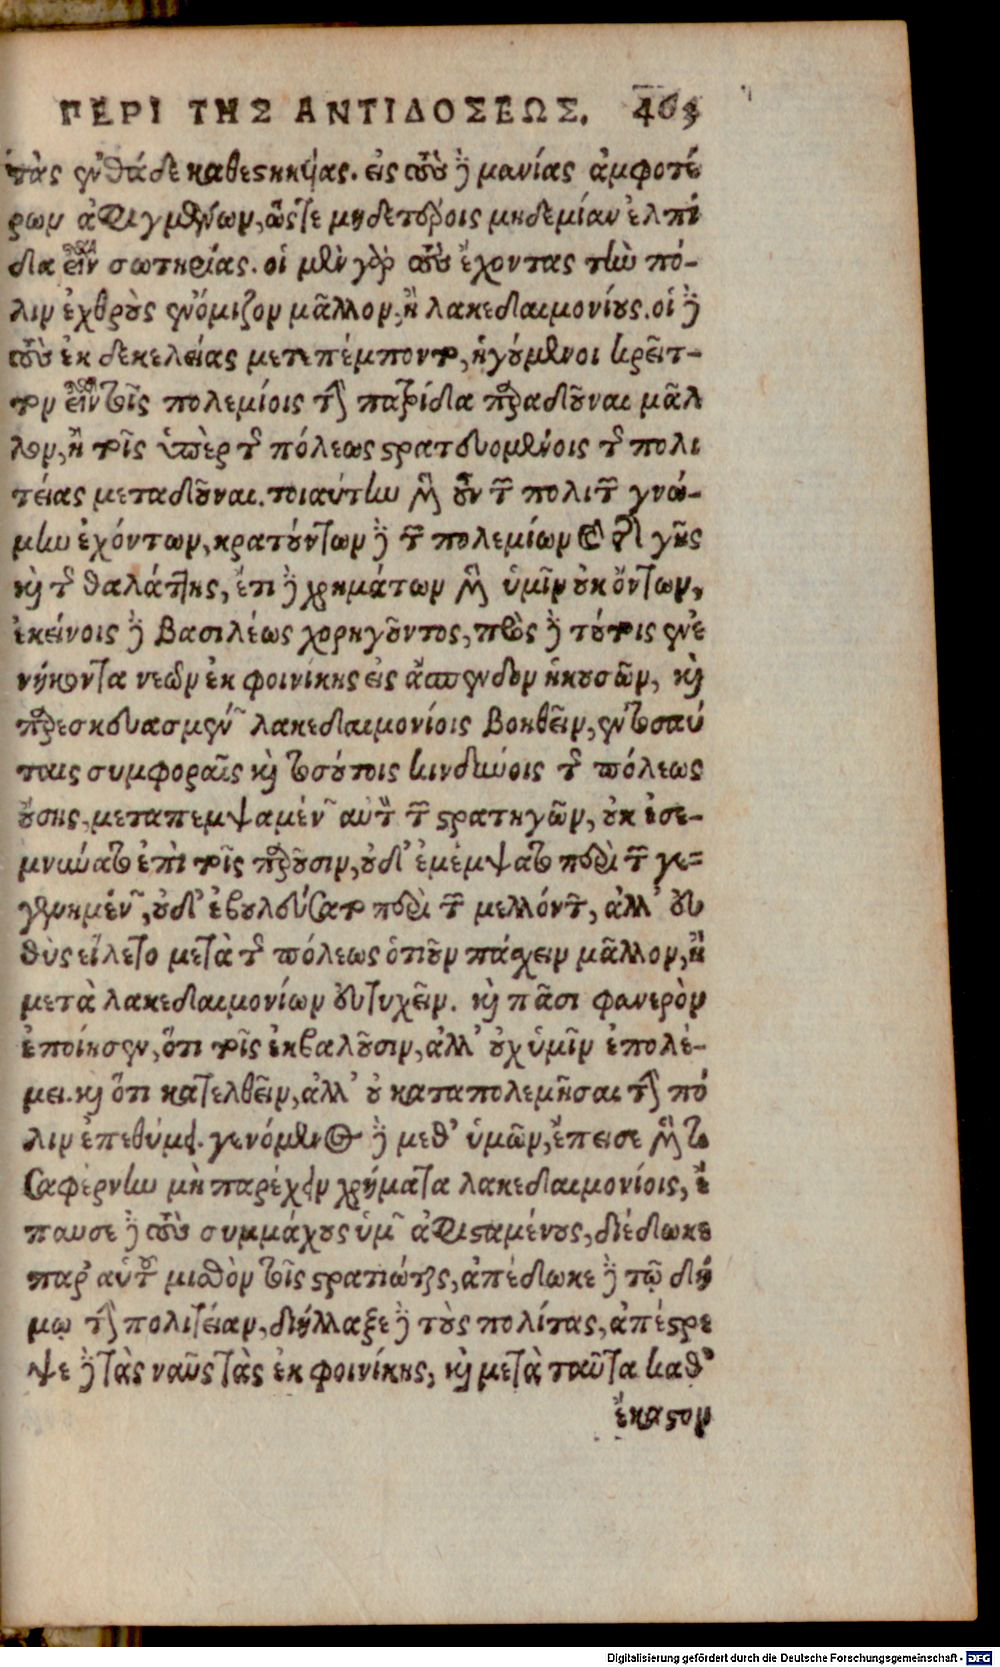 ΠΕΡΙ ΤΗΣ ΑΝΤΙΔΟΣΕΩΣ. 463
τὰς ἐνθάδε καθεστηκυίας. εἰς τοῦτο δὲ μανίας ἀμφοτέ
ρων ἀφιγμένων, ὥστε μηδετέροις μηδεμίαν ἐλπί
δα εἶναι σωτηρίας. οἱ μὲν γὰρ τοὺς ἔχοντας τὴν πό-
λιν ἐχθροὺς ἐνόμιζον μᾶλλον, ἢ λακεδαιμονίους. οἱ δὲ
τοὺς ἐκ δεκελείας μετεπέμποντο, ἡγούμενοι κρεῖτ-
τον εἶναι τοῖς πολεμίοις τὴν πατρίδα παραδοῦναι μᾶλ
λον, ἢ τοῖς ὑπὲρ τῆς πόλεως στρατευομένοις τῆς πολι
τείας μεταδοῦναι. τοιαύτην μὲν οὖν τῶν πολιτῶν γνώ-
μην ἐχόντων, κρατούντων δὲ τῶν πολεμίων καὶ τῆς γῆς
καὶ τῆς θαλάττης, ἔτι δὲ χρημάτων μὲν ὑμῖν οὐκ ὄντων,
ἐκείνοις δὲ βασιλέως χορηγοῦντος, πρὸς δὲ τούτοις ἐνε
νήκοντα νεῶν ἐκ φοινίκης εἰς ἄσπενδον ἡκουσῶν, καὶ
παρεσκευασμένων λακεδαιμονίοις βοηθεῖν, ἐν τοσαύ
ταις συμφοραῖς καὶ τοσούτοις κινδύνοις τῆς πόλεως
οὔσης, μεταπεμψαμένων αὐτὸν τῶν στρατηγῶν, οὐκ ἐσε-
μνύνατο ἐπὶ τοῖς παροῦσιν, οὐδ' ἐμέμψατο περὶ τῶν γε-
γενημένων, οὐδ' ἐβουλεύσατο περὶ τῶν μελλόντων, ἀλλ' εὐ
θὺς εἵλετο μετὰ τῆς πόλεως ὁτιοῦν πάσχειν μᾶλλον, ἢ
μετὰ λακεδαιμονίων εὐτυχεῖν. καὶ πᾶσι φανερὸν
ἐποίησεν, ὅτι τοῖς ἐκβαλοῦσιν, ἀλλ' οὐχ ὑμῖν ἐπολέ-
μει. καὶ ὅτι κατελθεῖν, ἀλλ' οὐ καταπολεμῆσαι τὴν πό
λιν ἐπεθύμει. γενόμενος δὲ μεθ' ὑμῶν, ἔπεισε μὲν τισ
σαφέρνην μὴ παρέχειν χρήματα λακεδαιμονίοις, ἔ
παυσε δὲ τοὺς συμμάχους ὑμῶν ἀφισταμένους, διέδωκε
παρ' αὑτοῦ μισθὸν τοῖς στρατιώταις, ἀπέδωκε δὲ τῷ δή
μῳ τὴν πολιτείαν, διήλλαξε δὲ τοὺς πολίτας, ἀπέστρε
ψε δὲ τὰς ναῦς τὰς ἐκ φοινίκης, καὶ μετὰ ταῦτα καθ'
ἕκαστον
Digitalisierung gefördert durch die Deutsche Forschungsgemeinschaft - DFG